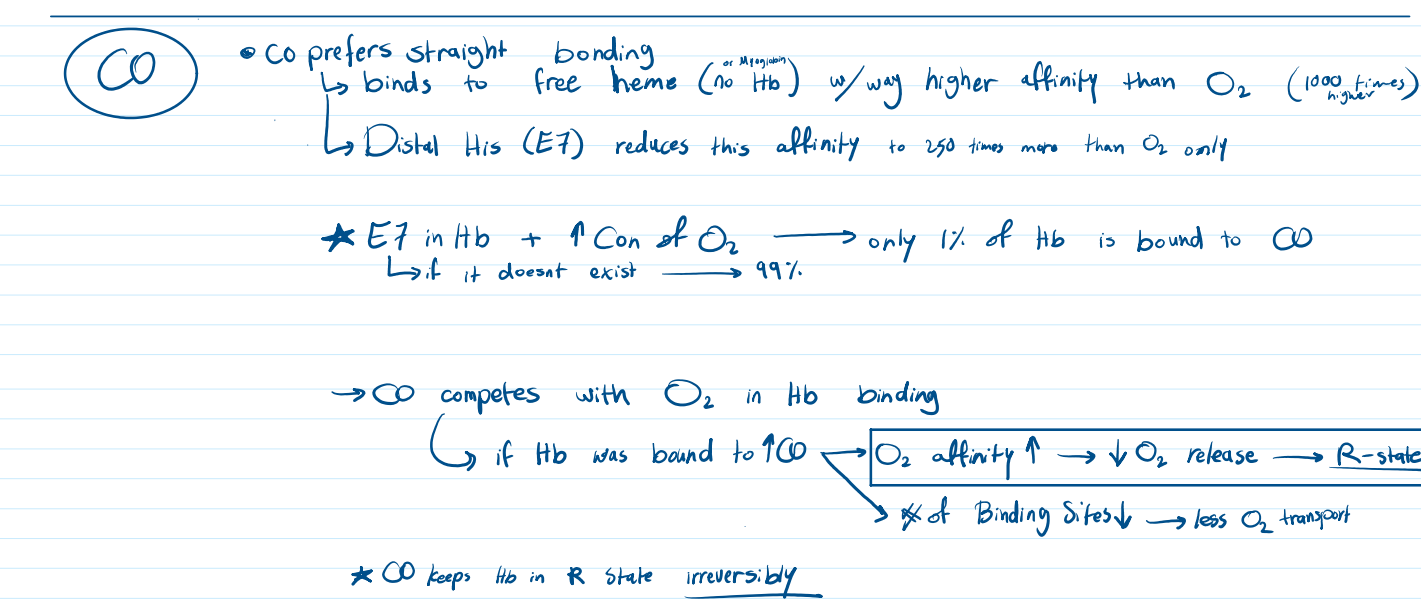 CO
• CO prefers straight bonding
↳ binds to free heme (no Hb or Myoglobin) w/way higher affinity than O₂ (1000 times higher)
↳ Distal His (E7) reduces this affinity to 250 times more than O₂ only
★ E7 in Hb + ↑ Con of O₂ → only 1% of Hb is bound to CO
↳ if it doesnt exist → 99%
→ CO competes with O₂ in Hb binding
↳ if Hb was bound to ↑CO → O₂ affinity ↑ → ↓ O₂ release → R-state
→ # of Binding Sites↓ → less O₂ transport
★ CO keeps Hb in R State irreversibly